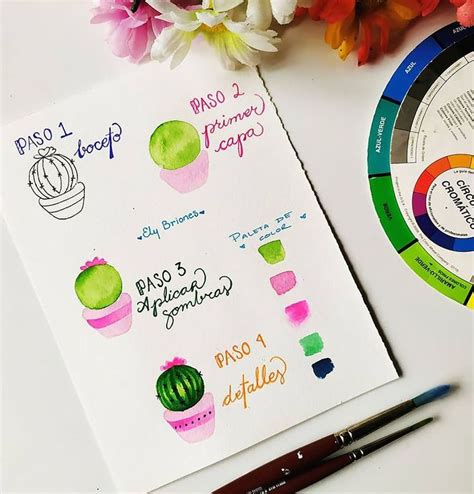 PASO 1
boceto
PASO 2
primer
capa
Ely Briones
PALETA DE
COLOR
PASO 3
Aplicar
sombras
PASO 4
detalles
AZUL
AZUL-VERDE
VERDE
AMARILLO-VERDE
CÍRCULO
CROMÁTICO